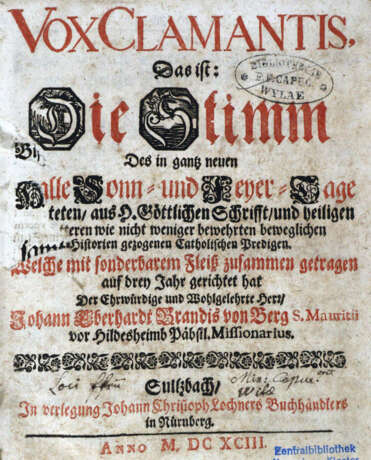 VOX CLAMANTIS,
Das ist:
BIBLIOTHECA
F.F. CAPUC.
WYLAE
Die Stimm
Des in gantz neuen
alle Sonn- und Feyer-Tage
teten/ aus H. Göttlichen Schrifft/ und heiligen
tteren wie nicht weniger bewehrten beweglichen
Historien gezogenen Catholischen Predigen.
Welche mit sonderbarem Fleiß zusammen getragen
auf drey Jahr gerichtet hat
Der Ehrwürdige und Wohlgelehrte Herr/
Johann Eberhardt Brandis von Berg S. Mauritii
vor Hildesheimb Päbstl. Missionarius.
Loci
Sultzbach/
In verlegung Johann Christoph Lochners Buchhändlers
in Nürnberg.
ANNO M. DC XCIII.
Zentralbibliothek